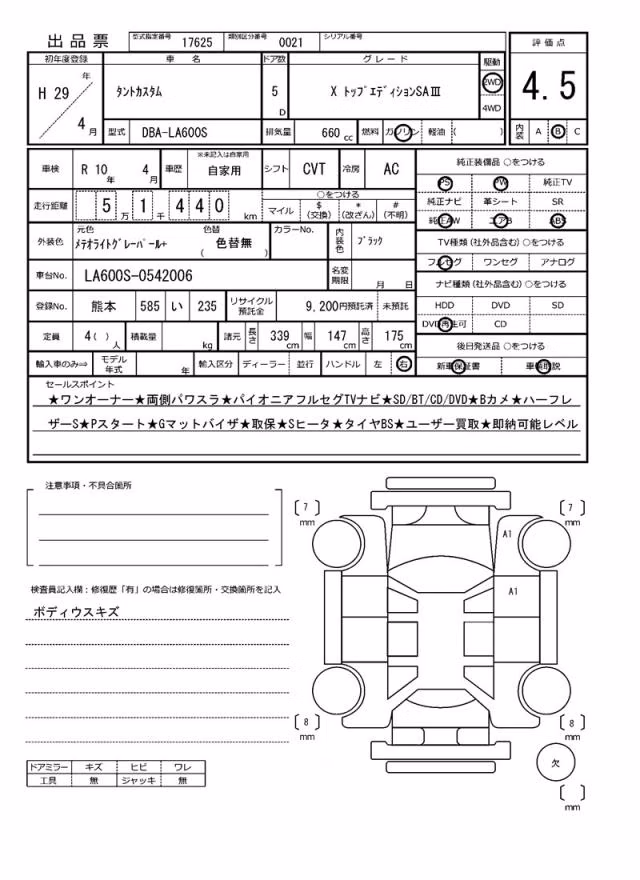 出品票 型式指定番号 17625 類別区分番号 0021 シリアル番号
初年度登録 車名 ドア数 グレード 駆動 評価点
H 29 年 4 月 タントカスタム 5 D X トップエディションSAⅢ 2WD 4WD 4.5
型式 DBA-LA600S 排気量 660 cc 燃料 ガソリン 軽油 ( ) 内装 A B C
車検 R 10 年 4 月 車歴 ※未記入は自家用 自家用 シフト CVT 冷房 AC
純正装備品 ○をつける
PS PW 純正TV
純正ナビ 革シート SR
純正AW エアB ABS
走行距離 5 万 1 千 4 4 0 km ○をつける マイル $ (交換) * (改ざん) # (不明)
外装色 元色 メテオライトグレーパール+ 色替 ( 色替無 ) カラーNo. 内装色 ブラック
TV種類 (社外品含む) ○をつける
フルセグ ワンセグ アナログ
車台No. LA600S-0542006 名変期限 月 日
ナビ種類 (社外品含む) ○をつける
HDD DVD SD
DVD再生可 CD
登録No. 熊本 585 い 235 リサイクル預託金 9,200円預託済 未預託
定員 4( ) 人 積載量 kg 諸元 長さ 339 cm 幅 147 cm 高さ 175 cm
後日発送品 ○をつける
新車保証書 車輌取説
輸入車のみ⇒ モデル年式 年 輸入区分 ディーラー 並行 ハンドル 左 右
セールスポイント
★ワンオーナー★両側パワスラ★パイオニアフルセグTVナビ★SD/BT/CD/DVD★Bカメ★ハーフレ
ザーS★Pスタート★Gマットバイザ★取保★Sヒータ★タイヤBS★ユーザー買取★即納可能レベル
注意事項・不具合箇所
検査員記入欄:修復歴「有」の場合は修復箇所・交換箇所を記入
ボディウスキズ
7 mm
7 mm
A1
A1
8 mm
8 mm
欠
mm
ドアミラー キズ ヒビ ワレ
工具 無 ジャッキ 無